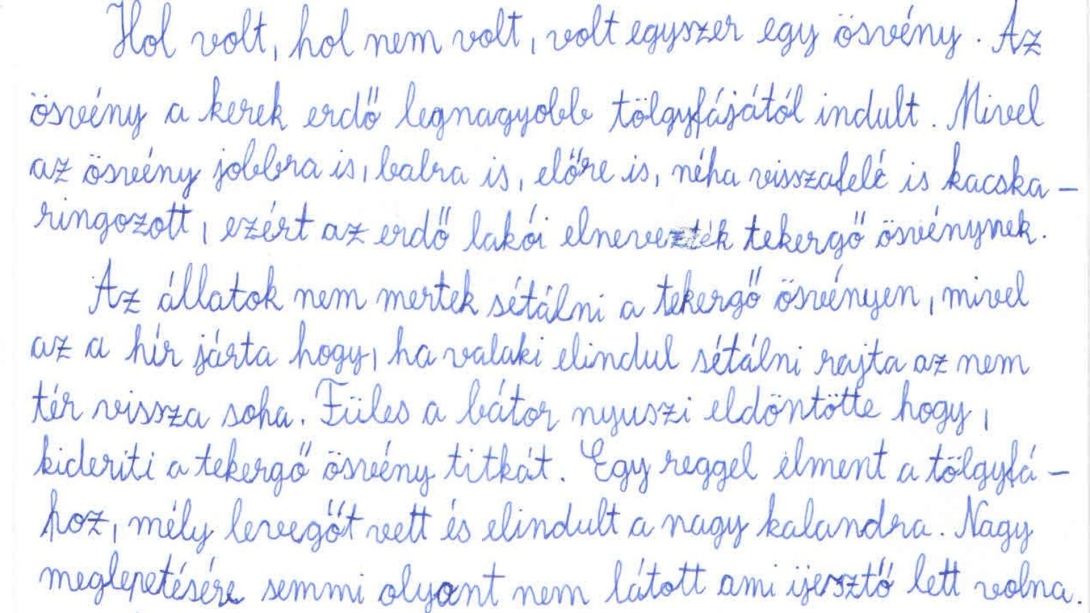 Hol volt, hol nem volt, volt egyszer egy ösvény. Az
ösvény a kerek erdő legnagyobb tölgyfájától indult. Mivel
az ösvény jobbra is, balra is, előre is, néha visszafelé is kacska-
ringozott, ezért az erdő lakói elnevezték tekergő ösvénynek.
Az állatok nem mertek sétálni a tekergő ösvényen, mivel
az a hír járta hogy, ha valaki elindul sétálni rajta az nem
tér vissza soha. Füles a bátor nyuszi eldöntötte hogy,
kideríti a tekergő ösvény titkát. Egy reggel elment a tölgyfá-
hoz, mély levegőt vett és elindult a nagy kalandra. Nagy
meglepetésére semmi olyant nem látott ami ijesztő lett volna.